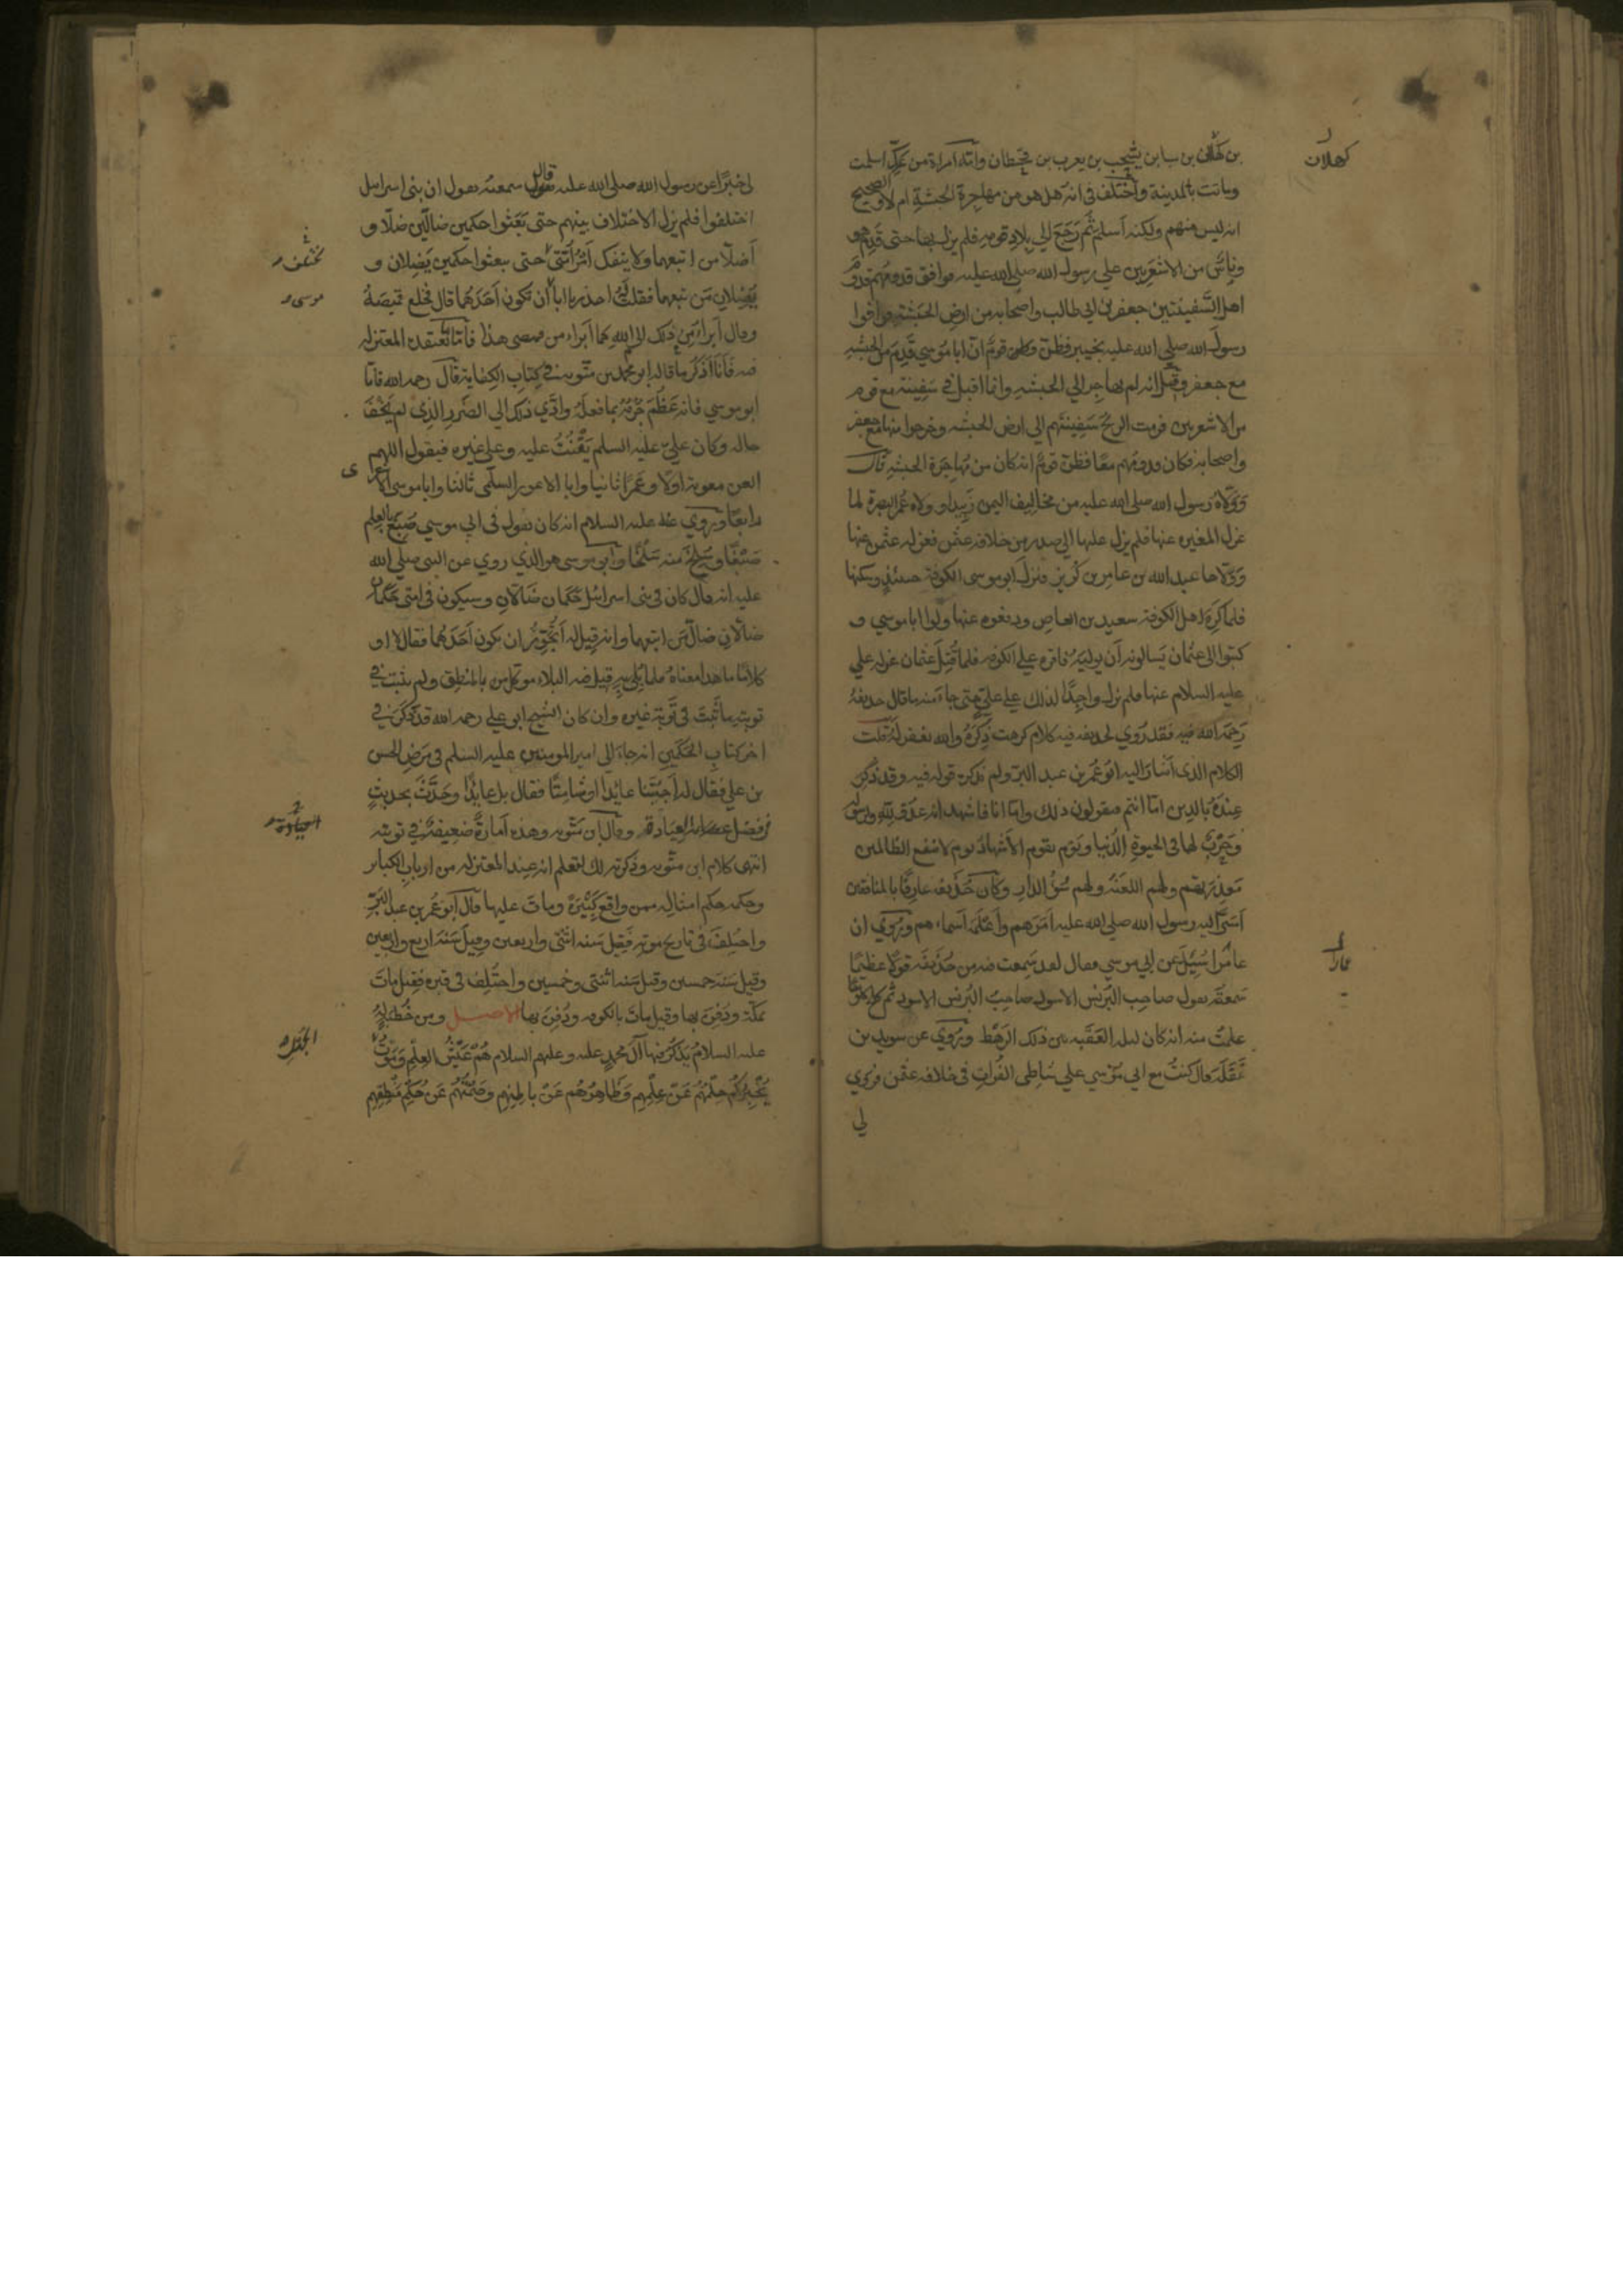 بن كهلان بن سبا بن يشجب بن يعرب بن قحطان وامه امراة من عك اسلمت
وماتت بالمدينة واختلف في انه هل هو من مهاجرة الحبشة ام لا والصحيح
انه ليس منهم ولكنه اسلم ثم رجع الي بلاد قومه فلم يزل بها حتى قدم هو
وناس من الاشعريين علي رسول الله صلي الله عليه فوافق قدومهم قدوم
اهل السفينتين جعفر بن ابي طالب واصحابه من ارض الحبشة فوافوا
رسول الله صلي الله عليه بخيبر فظن قوم ان ابا موسي قدم من الحبشه
مع جعفر وقيل انه لم يهاجر الي الحبشه وانما اقبل في سفينة مع قوم
من الاشعريين فرمت الريح سفينتهم الي ارض الحبشه وخرجوا منها مع جعفر
واصحابه فكان قدومهم معا فظن قوم انه كان من مهاجرة الحبشه قال
وولاه رسول الله صلي الله عليه من مخاليف اليمن زبيد وولاه عمر البصرة لما
عزل المغيره عنها فلم يزل عليها الي صدر من خلافه عثمن فعزله عثمن عنها
وولاها عبد الله بن عامر بن كريز فنزل ابو موسى الكوفة حينئذ وسكنها
فلما كره اهل الكوفة سعيد بن العاص ودفعوه عنها ولوا ابا موسي و
كتبوا الى عثمان يسالونه ان يوليه فاقره علي الكوفه فلما قتل عثمان عزله علي
عليه السلام عنها فلم يزل واجدا لذلك علي علي حتى جا منه ما قال حذيفة
رحمه الله فيه فقد روي لحذيفه فيه كلام كرهت ذكره والله يغفر له قلت
الكلام الذى اشار اليه ابو عمر بن عبد البر ولم يذكر قوله فيه وقد ذكر
عنده بالدين اما انتم فتقولون ذلك واما انا فاشهد انه عدو لله ولرسوله
وحرب لهما في الحيوة الدنيا ويوم يقوم الاشهاد يوم لا ينفع الظالمين
معذرتهم ولهم اللعنة ولهم سوء الدار وكان حذيفه عارفا بالمنافقين
اسر اليه رسول الله صلي الله عليه امرهم واعلمه اسماءهم وروي ان
عمارا سئل عن ابي موسي فقال لقد سمعت فيه من حذيفه قولا عظيما
سمعته يقول صاحب البرنس الاسود صاحب البرنس الاسود ثم كلح كلوحا
علمت منه انه كان ليله العقبه بين ذلك الرهط وروي عن سويد بن
غفلة قال كنت مع ابي موسي علي شاطى الفرات في خلافه عثمن فروي
لي
كهلان
عمارا
لي خبرا عن رسول الله صلى الله عليه قال سمعته يقول ان بنى اسرائيل
اختلفوا فلم يزل الاختلاف بينهم حتى بعثوا حكمين ضالين ضلا و
اضلا من اتبعهما ولا ينفك امر امتي حتى يبعثوا حكمين يضلان و
يضلان من تبعهما فقلت له احذر يا ابا ان تكون احدهما قال فخلع قميصه
وقال ابرا من ذلك الى الله كما ابراء من قميصى هذا فاما ما تعتقده المعتزله
فيه فانا اذكر ما قاله ابو محمد بن متويه في كتاب الكفاية قال رحمه الله فاما
ابو موسي فانه عظم جرمه بما فعله وادي ذلك الي الضرر الذي لم يخف
حاله وكان علي عليه السلم يقنت عليه وعلى غيره فيقول اللهم
العن معوية اولا وعمرا ثانيا وابا الاعور السلمي ثالثا وابا موسى الاشعرى
رابعا وروي عنه عليه السلام انه كان يقول في ابي موسي صبغ بالعلم
صبغا وسلخ منه سلخا وابو موسى هو الذي روي عن النبي صلي الله
عليه انه قال كان في بنى اسرائيل حكمان ضالان وسيكون في امتى حكمان
ضالان ضال من اتبعهما وانه قيل له ايجوز ان يكون احدهما فقال لا او
كلاما ما هذا معناه فلما بلي به قيل فيه البلاء موكل بالمنطق ولم يثبت في
توبته ما ثبت في توبة غيره وان كان الشيخ ابو علي رحمه الله قد ذكر في
اخر كتاب الحكمين انه جاء الي امير المومنين عليه السلم في مرض الحسن
بن علي فقال له اجئتنا عايدا او شامتا فقال بل عايدا وحدث بحديث
في فضل العيادة وقال ابن متويه وهذه امارة ضعيفة في توبته
انتهى كلام ابن متويه وذكرته لك لتعلم انه عند المعتزله من ارباب الكبائر
وحكمه حكم امثاله ممن واقع كبيرة ومات عليها قال ابو عمر بن عبد البر
واختلف في تاريخ موته فقيل سنه اثنتي واربعين وقيل سنة اربع واربعين
وقيل سنة خمسين وقيل سنه اثنتي وخمسين واختلف في قبره فقيل مات
بمكة ودفن بها وقيل مات بالكوفه ودفن بها الاصل ومن خطبة له
عليه السلام يذكر فيها آل محمد عليه وعليهم السلام هم عيش العلم وموت
يخبركم حلمهم عن علمهم وظاهرهم عن باطنهم وصمتهم عن حكم منطقهم
موسى
العيادة
الجهل